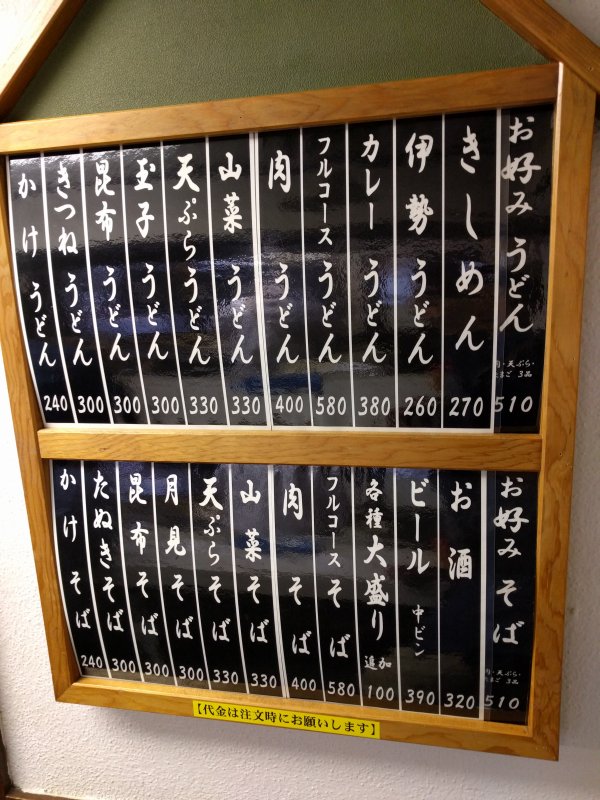 お好みうどん 肉・天ぷら・たまご 3品 510
きしめん 270
伊勢うどん 260
カレーうどん 380
フルコースうどん 580
肉うどん 400
山菜うどん 330
天ぷらうどん 330
玉子うどん 300
昆布うどん 300
きつねうどん 300
かけうどん 240
お好みそば 肉・天ぷら・たまご 3品 510
お酒 320
ビール 中ビン 390
各種大盛り 追加 100
フルコースそば 580
肉そば 400
山菜そば 330
天ぷらそば 330
月見そば 300
昆布そば 300
たぬきそば 300
かけそば 240
【代金は注文時にお願いします】